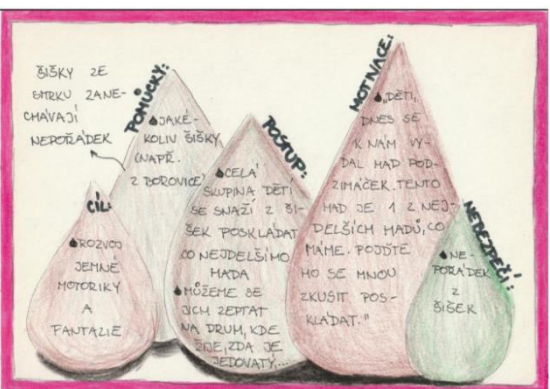 ŠIŠKY ZE
SMRKU ZANE-
CHÁVAJÍ
NEPOŘÁDEK
POMŮCKY:
JAKÉ-
KOLIV ŠIŠKY
(NAPŘ.
Z BOROVICE)
CÍL:
ROZVOJ
JEMNÉ
MOTORIKY
A
FANTAZIE
POSTUP:
CELÁ
SKUPINA DĚTÍ
SE SNAŽÍ Z ŠI-
ŠEK POSKLÁDAT
CO NEJDELŠÍHO
HADA
MŮŽEME SE
JICH ZEPTAT
NA DRUH, KDE
ŽIJE, ZDA JE
JEDOVATÝ,...
MOTIVACE:
„DĚTI,
DNES SE
K NÁM VY-
DAL HAD POD-
ZIMÁČEK. TENTO
HAD JE 1 Z NEJ-
DELŠÍCH HADŮ, CO
MÁME. POJĎTE
HO SE MNOU
ZKUSIT POS-
KLÁDAT."
NEBEZPEČÍ:
NE-
POŘÁDEK
Z
ŠIŠEK